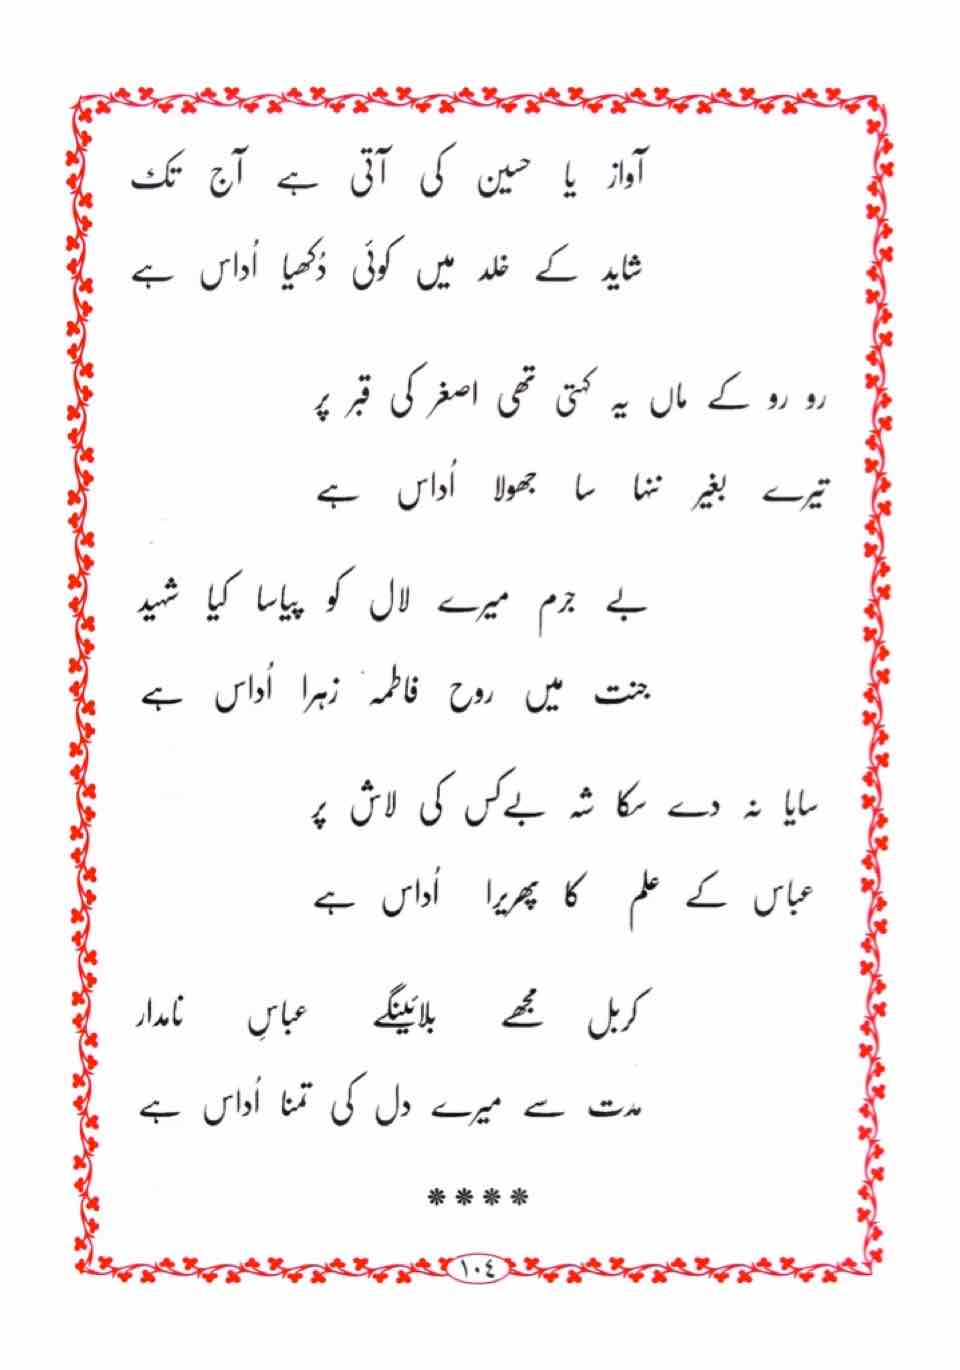 آواز یا حسین کی آتی ہے آج تک
شاید کے خلد میں کوئی دُکھیا اُداس ہے
رو رو کے ماں یہ کہتی تھی اصغر کی قبر پر
تیرے بغیر ننھا سا جھولا اُداس ہے
بے جرم میرے لال کو پیاسا کیا شہید
جنت میں روح فاطمہ زہرا اُداس ہے
سایا نہ دے سکا شہ بےکس کی لاش پر
عباس کے علم کا پھریرا اُداس ہے
کربل مجھے بلائینگے عباسِ نامدار
مدت سے میرے دل کی تمنا اُداس ہے
****
١٠٤